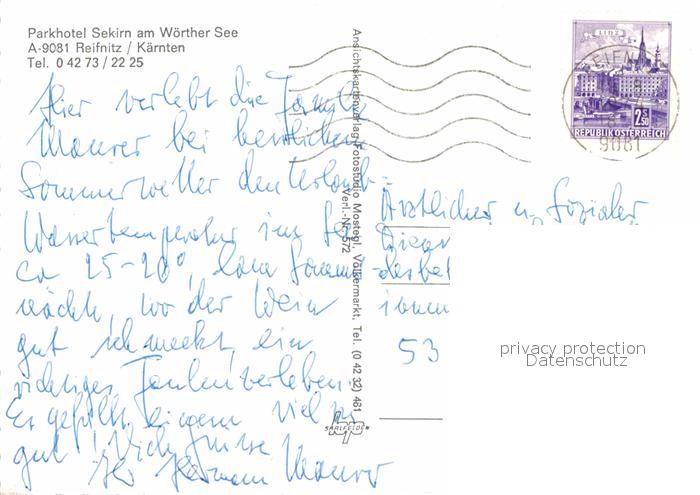 Parkhotel Sekirn am Wörther See
A-9081 Reifnitz / Kärnten
Tel. 0 42 73 / 22 25
Hier verlebt die Familie
Maurer bei herrlichem
Sommerwetter den Urlaub
Wassertemperatur im See
ca 25-26°, laue Sommer-
nächte, wo der Wein
gut schmeckt, ein
richtiges Faulenzerleben.
Es gefällt einem viel zu
gut! Viele Grüsse
Ihr Hermann Maurer
Ansichtskartenverlag Fotostudio Mostögl, Völkermarkt, Tel. (0 42 32) 461
Verl.-Nr. 572
SAALFELDEN
LINZ
2.50
REPUBLIK ÖSTERREICH
9081
Ärztlicher u. Sozialer
Dienst
53
privacy protection
Datenschutz